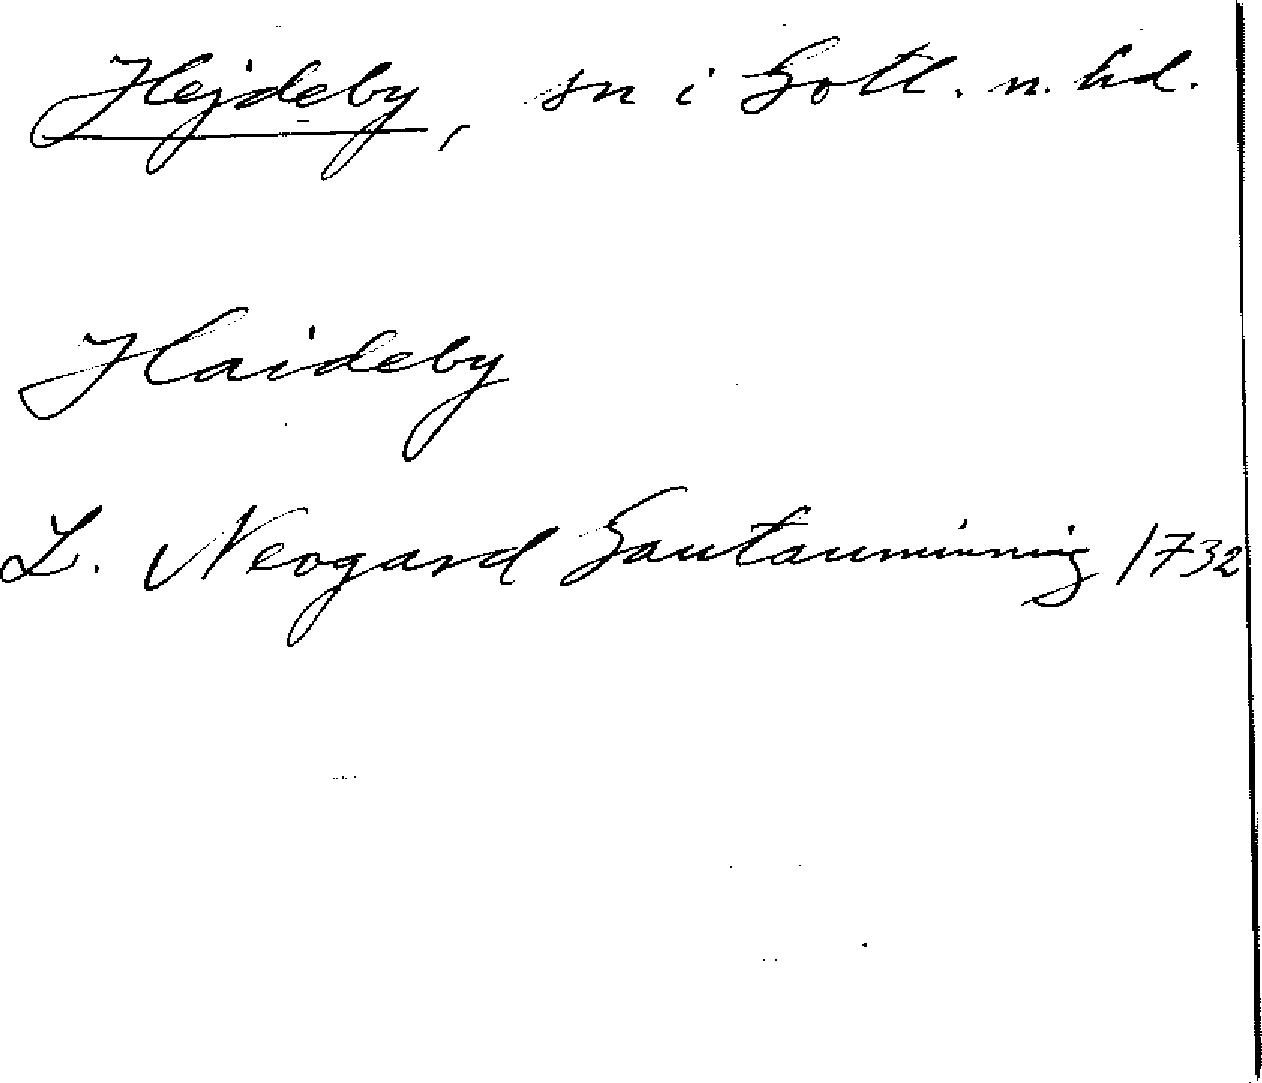 Hejdeby, sn i Gotl. n. hd.
Haideby
L. Neogard Gautauminning 1732